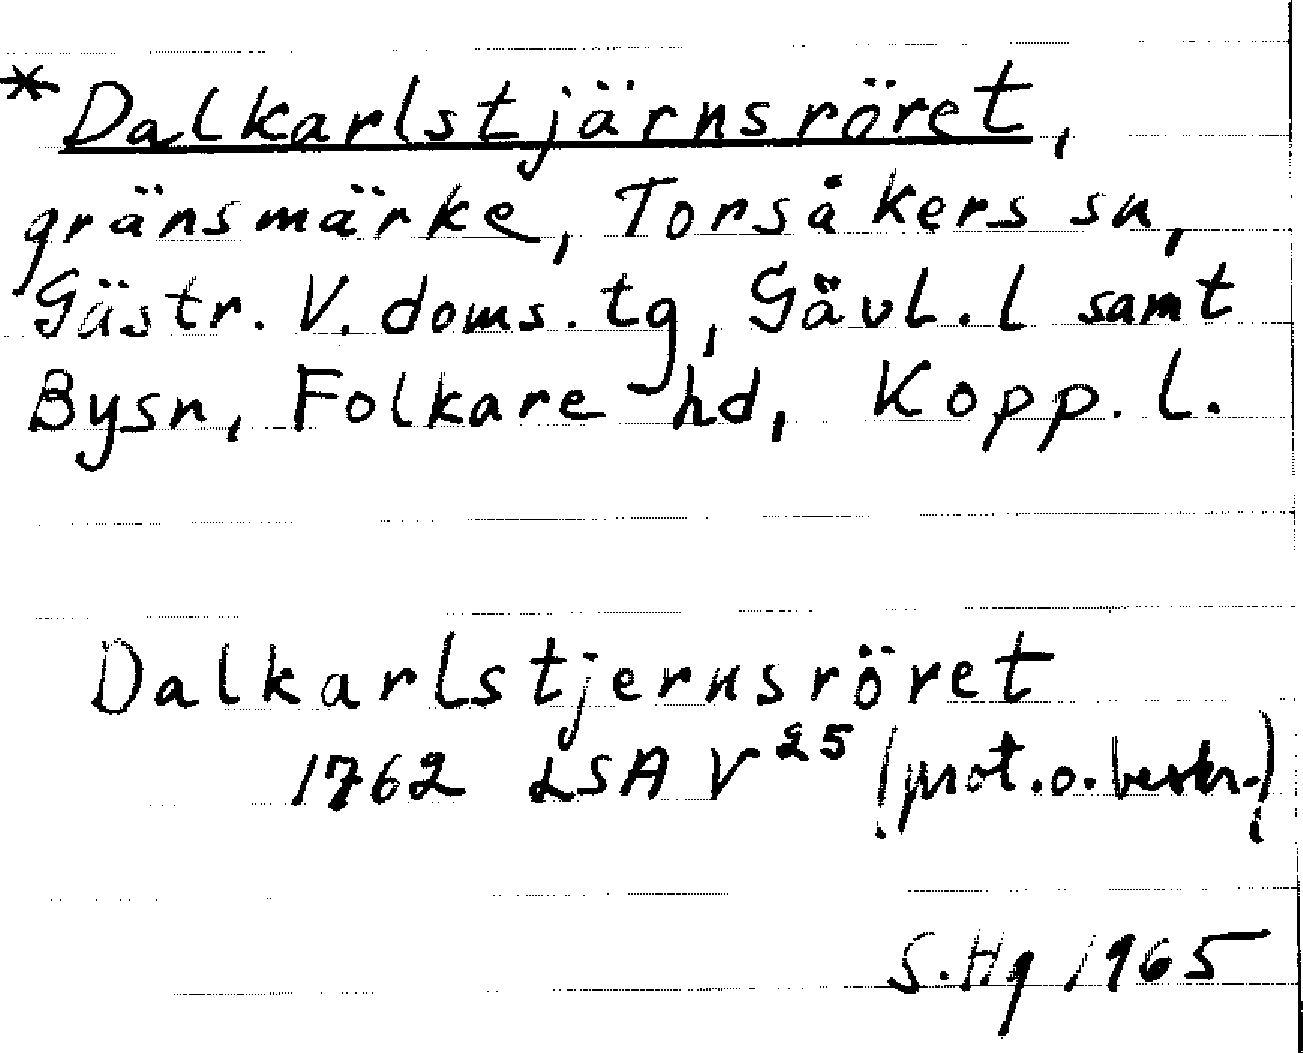 *Dalkarlstjärnsröret,
gränsmärke, Torsåkers sn,
Gästr. V. doms. tg, Gävl. l samt
By sn, Folkare hd, Kopp. l.
Dalkarlstjernsröret
1762 LSA V 25 (prot. o. beskr.)
S. Hg 1965